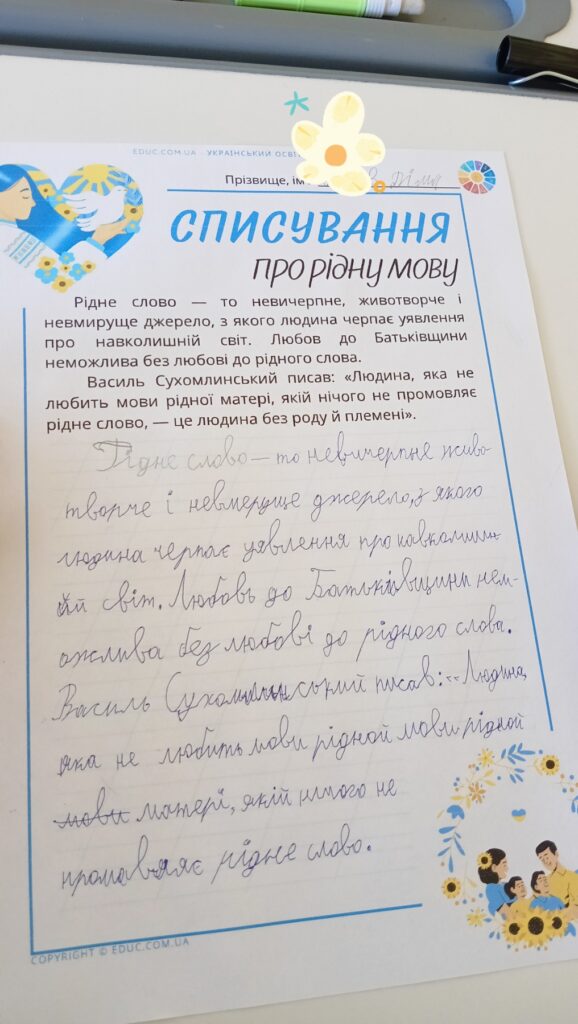 EDUC.COM.UA - УКРАЇНСЬКИЙ ОСВІТ
Прізвище, ім' Діма
СПИСУВАННЯ
ПРО РІДНУ МОВУ
Рідне слово — то невичерпне, животворче і
невмируще джерело, з якого людина черпає уявлення
про навколишній світ. Любов до Батьківщини
неможлива без любові до рідного слова.
Василь Сухомлинський писав: «Людина, яка не
любить мови рідної матері, якій нічого не промовляє
рідне слово, — це людина без роду й племені».
Рідне слово — то невичерпне живо
творче і невмеруще джерело, з якого
людина черпає уявлення про навколишн-
ій світ. Любовь до Батьківщини нем-
ожлива без любові до рідного слова.
Василь Сухомлинський писав: „Людина,
яка не любить мови рідной мови рідной
мови матері, якій нічого не
промавляє рідне слово.
COPYRIGHT © EDUC.COM.UA